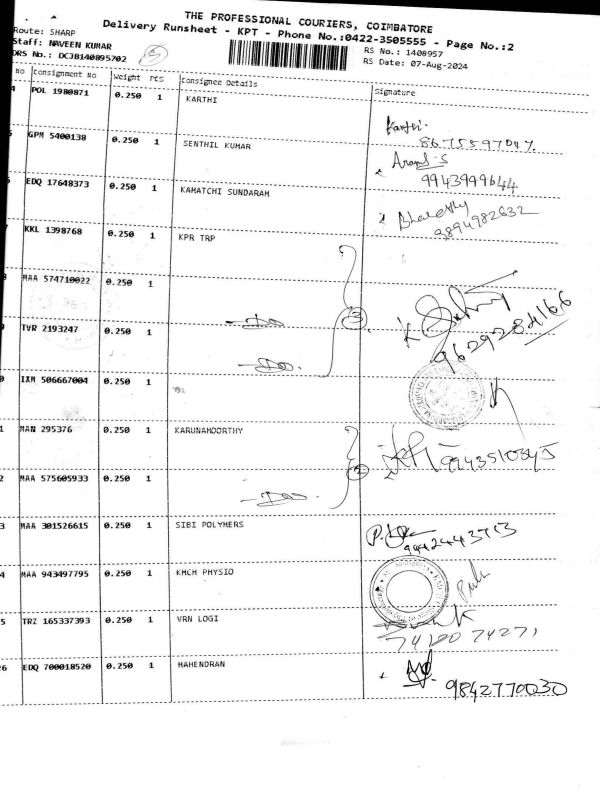 THE PROFESSIONAL COURIERS, COIMBATORE
Delivery Runsheet - KPT - Phone No.:0422-3505555 - Page No.:2
Route: SHARP
Staff: NAVEEN KUMAR
DRS No.: DCJB140895702
5
RS No.: 1408957
RS Date: 07-Aug-2024
No Consignment No Weight PCS Consignee Details Signature
4 POL 1980871 0.250 1 KARTHI Karthi. 8675597047.
5 GPM 5400138 0.250 1 SENTHIL KUMAR Anand S 9943999644
6 EDQ 17648373 0.250 1 KAMATCHI SUNDARAM 9894982632
7 KKL 1398768 0.250 1 KPR TRP
8 MAA 574710022 0.250 1 -Do- 3 9629284166
9 TVR 2193247 0.250 1 -Do-
0 IXM 506667004 0.250 1
1 MAN 295376 0.250 1 KARUNAMOORTHY 2 9943510345
2 MAA 575605933 0.250 1 -Do-
3 MAA 301526615 0.250 1 SIBI POLYMERS
4 MAA 943497795 0.250 1 KMCH PHYSIO
5 TRZ 165337393 0.250 1 VRN LOGI
26 EDQ 700018520 0.250 1 MAHENDRAN 9842770030